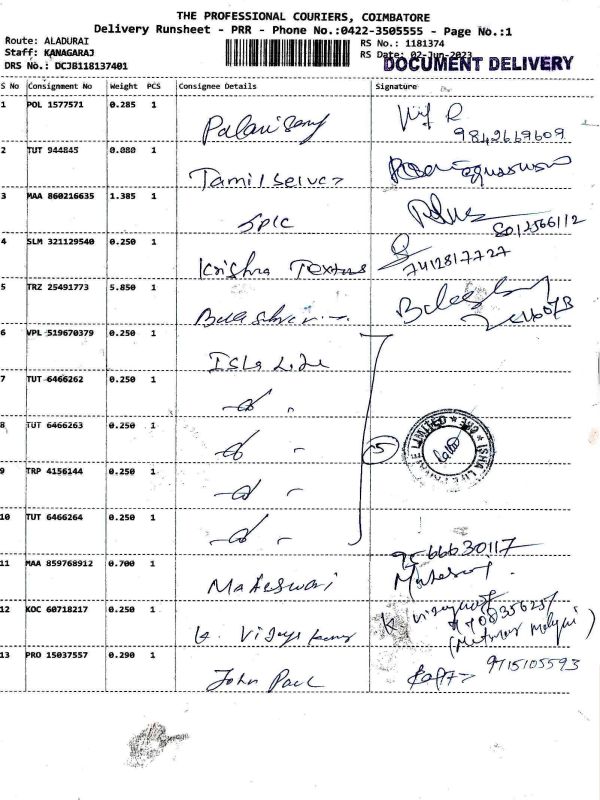 THE PROFESSIONAL COURIERS, COIMBATORE
Delivery Runsheet - PRR - Phone No.:0422-3505555 - Page No.:1
Route: ALADURAI
Staff: KANAGARAJ
DRS No.: DCJB118137401
RS No.: 1181374
RS Date: 02-Jun-2023
DOCUMENT DELIVERY
S No Consignment No Weight PCS Consignee Details Signature
1 POL 1577571 0.285 1 Palanisamy
9842669609
2 TUT 944845 0.080 1 Tamilselvan
3 MAA 860216635 1.385 1 SPIC
8012566112
4 SLM 321129540 0.250 1 Krishna Textus
7412817727
5 TRZ 25491773 5.850 1
6 VPL 519670379 0.250 1 Isha Life
7 TUT 6466262 0.250 1 -d -
8 TUT 6466263 0.250 1 -d -
5
ISHA LIFE PRIVATE LIMITED
9 TRP 4156144 0.250 1 -d -
10 TUT 6466264 0.250 1 -d -
11 MAA 859768912 0.700 1 Maheswari
9566630117
12 KOC 60718217 0.250 1 K. Vijaya kumar
13 PRO 15037557 0.290 1 John Paul
9715105593